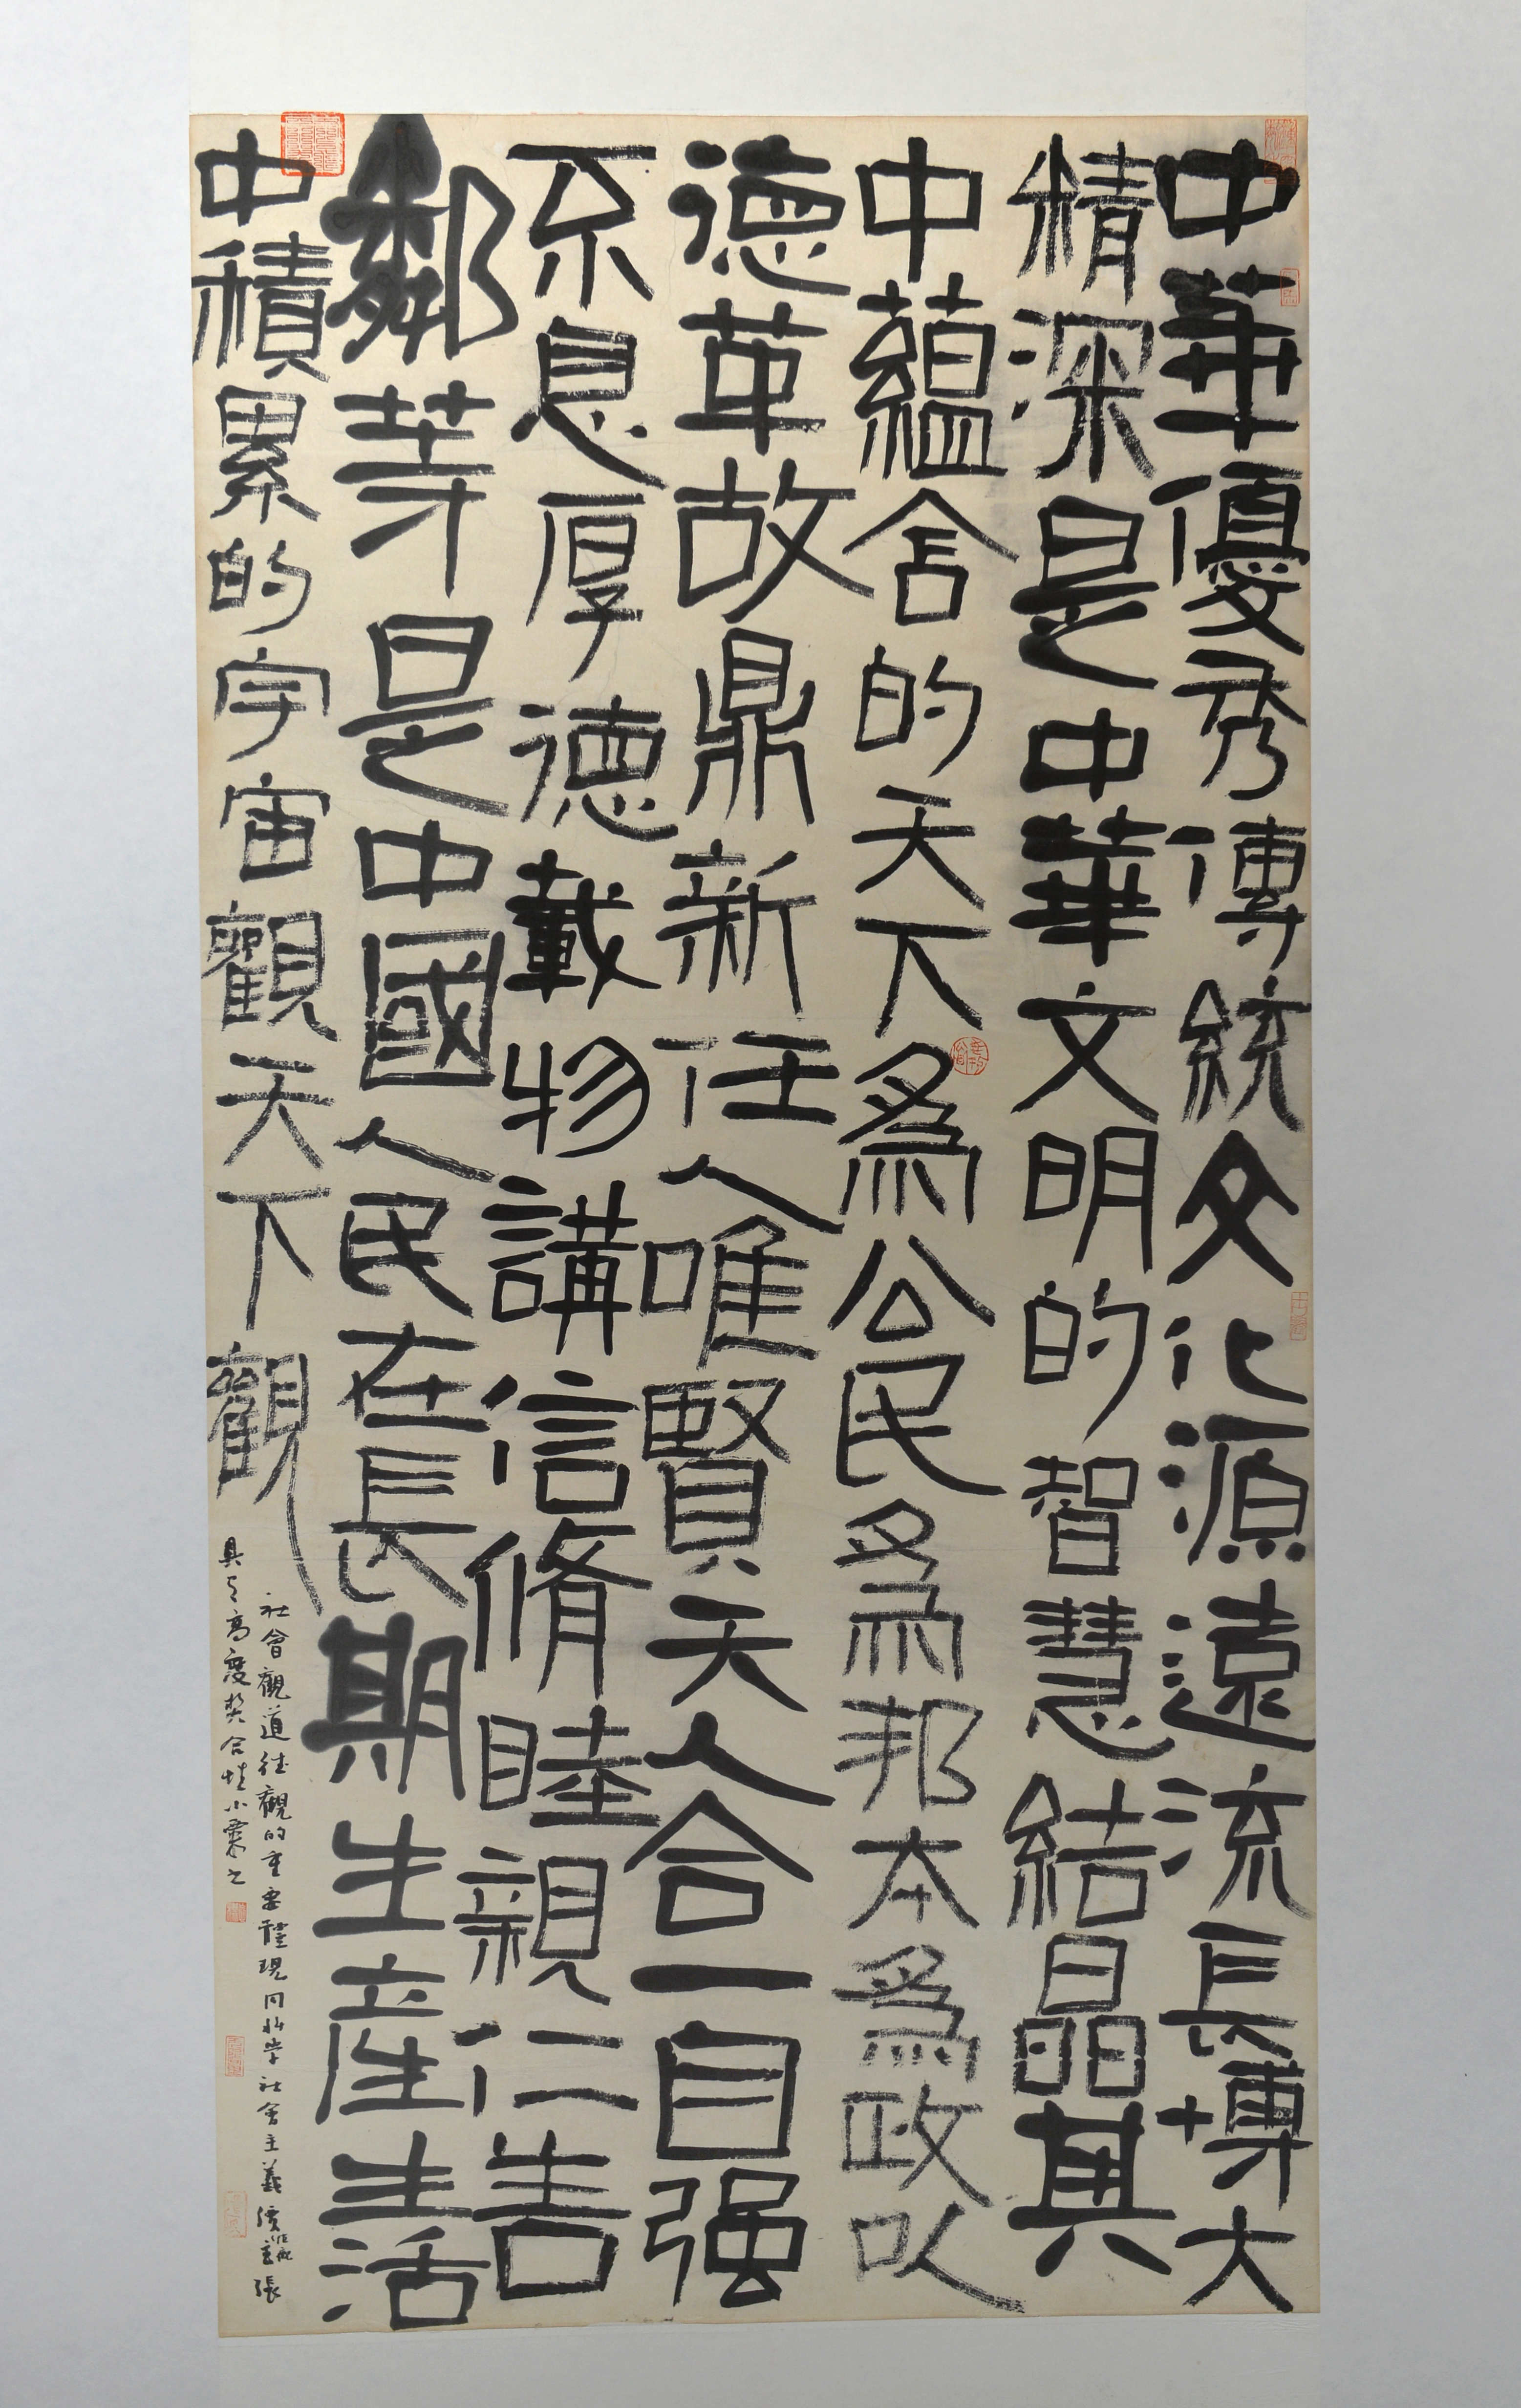 中華優秀傳統文化源遠流長博大
精深是中華文明的智慧結晶其
中蘊含的天下為公民為邦本為政以
德革故鼎新任人唯賢天人合一自强
不息厚德載物講信脩睦親仁善
鄰等是中國人民在長期生產生活
中積累的宇宙觀天下觀
社會觀道德觀的重要體現同科學社會主義價值觀主張
具有高度契合性